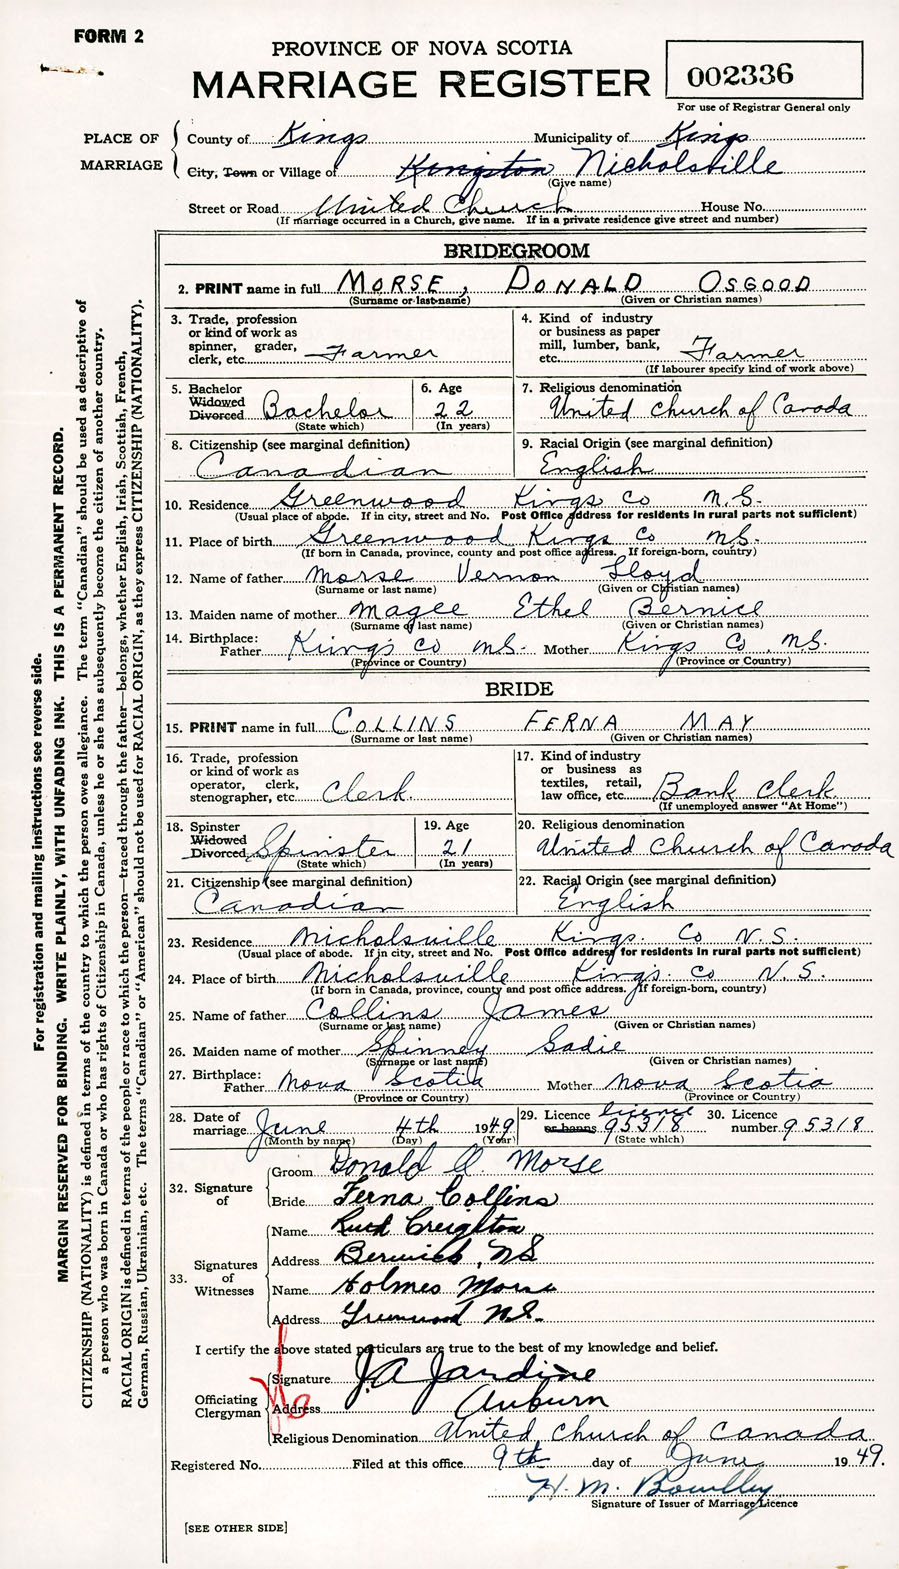 FORM 2
PROVINCE OF NOVA SCOTIA
MARRIAGE REGISTER
002336
For use of Registrar General only
PLACE OF MARRIAGE
County of Kings Municipality of Kings
City, Town or Village of Kingston Nicholsville
(Give name)
Street or Road United Church House No.
(If marriage occurred in a Church, give name. If in a private residence give street and number)
BRIDEGROOM
2. PRINT name in full MORSE, DONALD OSGOOD
(Surname or last name) (Given or Christian names)
3. Trade, profession or kind of work as spinner, grader, clerk, etc. Farmer
4. Kind of industry or business as paper mill, lumber, bank, etc. Farmer
(If labourer specify kind of work above)
5. Bachelor Widowed Divorced Bachelor
(State which)
6. Age 22
(In years)
7. Religious denomination
United Church of Canada
8. Citizenship (see marginal definition)
Canadian
9. Racial Origin (see marginal definition)
English
10. Residence Greenwood Kings Co N.S.
(Usual place of abode. If in city, street and No. Post Office address for residents in rural parts not sufficient)
11. Place of birth Greenwood Kings Co N.S.
(If born in Canada, province, county and post office address. If foreign-born, country)
12. Name of father Morse Vernon Lloyd
(Surname or last name) (Given or Christian names)
13. Maiden name of mother Magee Ethel Bernice
(Surname or last name) (Given or Christian names)
14. Birthplace: Father Kings Co N.S. Mother Kings Co. N.S.
(Province or Country) (Province or Country)
BRIDE
15. PRINT name in full COLLINS FERNA MAY
(Surname or last name) (Given or Christian names)
16. Trade, profession or kind of work as operator, clerk, stenographer, etc. Clerk.
17. Kind of industry or business as textiles, retail, law office, etc. Bank Clerk
(If unemployed answer "At Home")
18. Spinster Widowed Divorced Spinster
(State which)
19. Age 21
(In years)
20. Religious denomination
United Church of Canada
21. Citizenship (see marginal definition)
Canadian
22. Racial Origin (see marginal definition)
English
23. Residence Nicholsville Kings. Co N.S.
(Usual place of abode. If in city, street and No. Post Office address for residents in rural parts not sufficient)
24. Place of birth Nicholsville Kings. Co N.S.
(If born in Canada, province, county and post office address. If foreign-born, country)
25. Name of father Collins James
(Surname or last name) (Given or Christian names)
26. Maiden name of mother Spinney Sadie
(Surname or last name) (Given or Christian names)
27. Birthplace: Father Nova Scotia Mother Nova Scotia
(Province or Country) (Province or Country)
28. Date of marriage June 4th 1949
(Month by name) (Day) (Year)
29. Licence or banns licence 95318
(State which)
30. Licence number 95318
32. Signature of
Groom Donald O. Morse
Bride Ferna Collins
33. Signatures of Witnesses
Name Creighton
Address Berwick, NS
Name Holmes Morse
Address Greenwood N.S.
I certify the above stated particulars are true to the best of my knowledge and belief.
Officiating Clergyman
Signature J.A. Jardine
Address Auburn
Religious Denomination United Church of Canada
Registered No. Filed at this office 9th day of June 1949.
H. M.
Signature of Issuer of Marriage Licence
[SEE OTHER SIDE]
For registration and mailing instructions see reverse side.
MARGIN RESERVED FOR BINDING. WRITE PLAINLY, WITH UNFADING INK. THIS IS A PERMANENT RECORD.
CITIZENSHIP (NATIONALITY) is defined in terms of the country to which the person owes allegiance. The term "Canadian" should be used as descriptive of
a person who was born in Canada or who has rights of Citizenship in Canada, unless he or she has subsequently become the citizen of another country.
RACIAL ORIGIN is defined in terms of the people or race to which the person—traced through the father—belongs, whether English, Irish, Scottish, French,
German, Russian, Ukrainian, etc. The terms "Canadian" or "American" should not be used for RACIAL ORIGIN, as they express CITIZENSHIP (NATIONALITY).